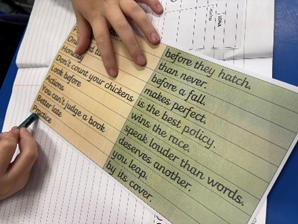 Don't count your chickens
Look before
Actions
You can't judge a book
Better late
before they hatch.
than never.
before a fall.
makes perfect.
is the best policy.
wins the race.
speak louder than words.
deserves another.
you leap.
by its cover.